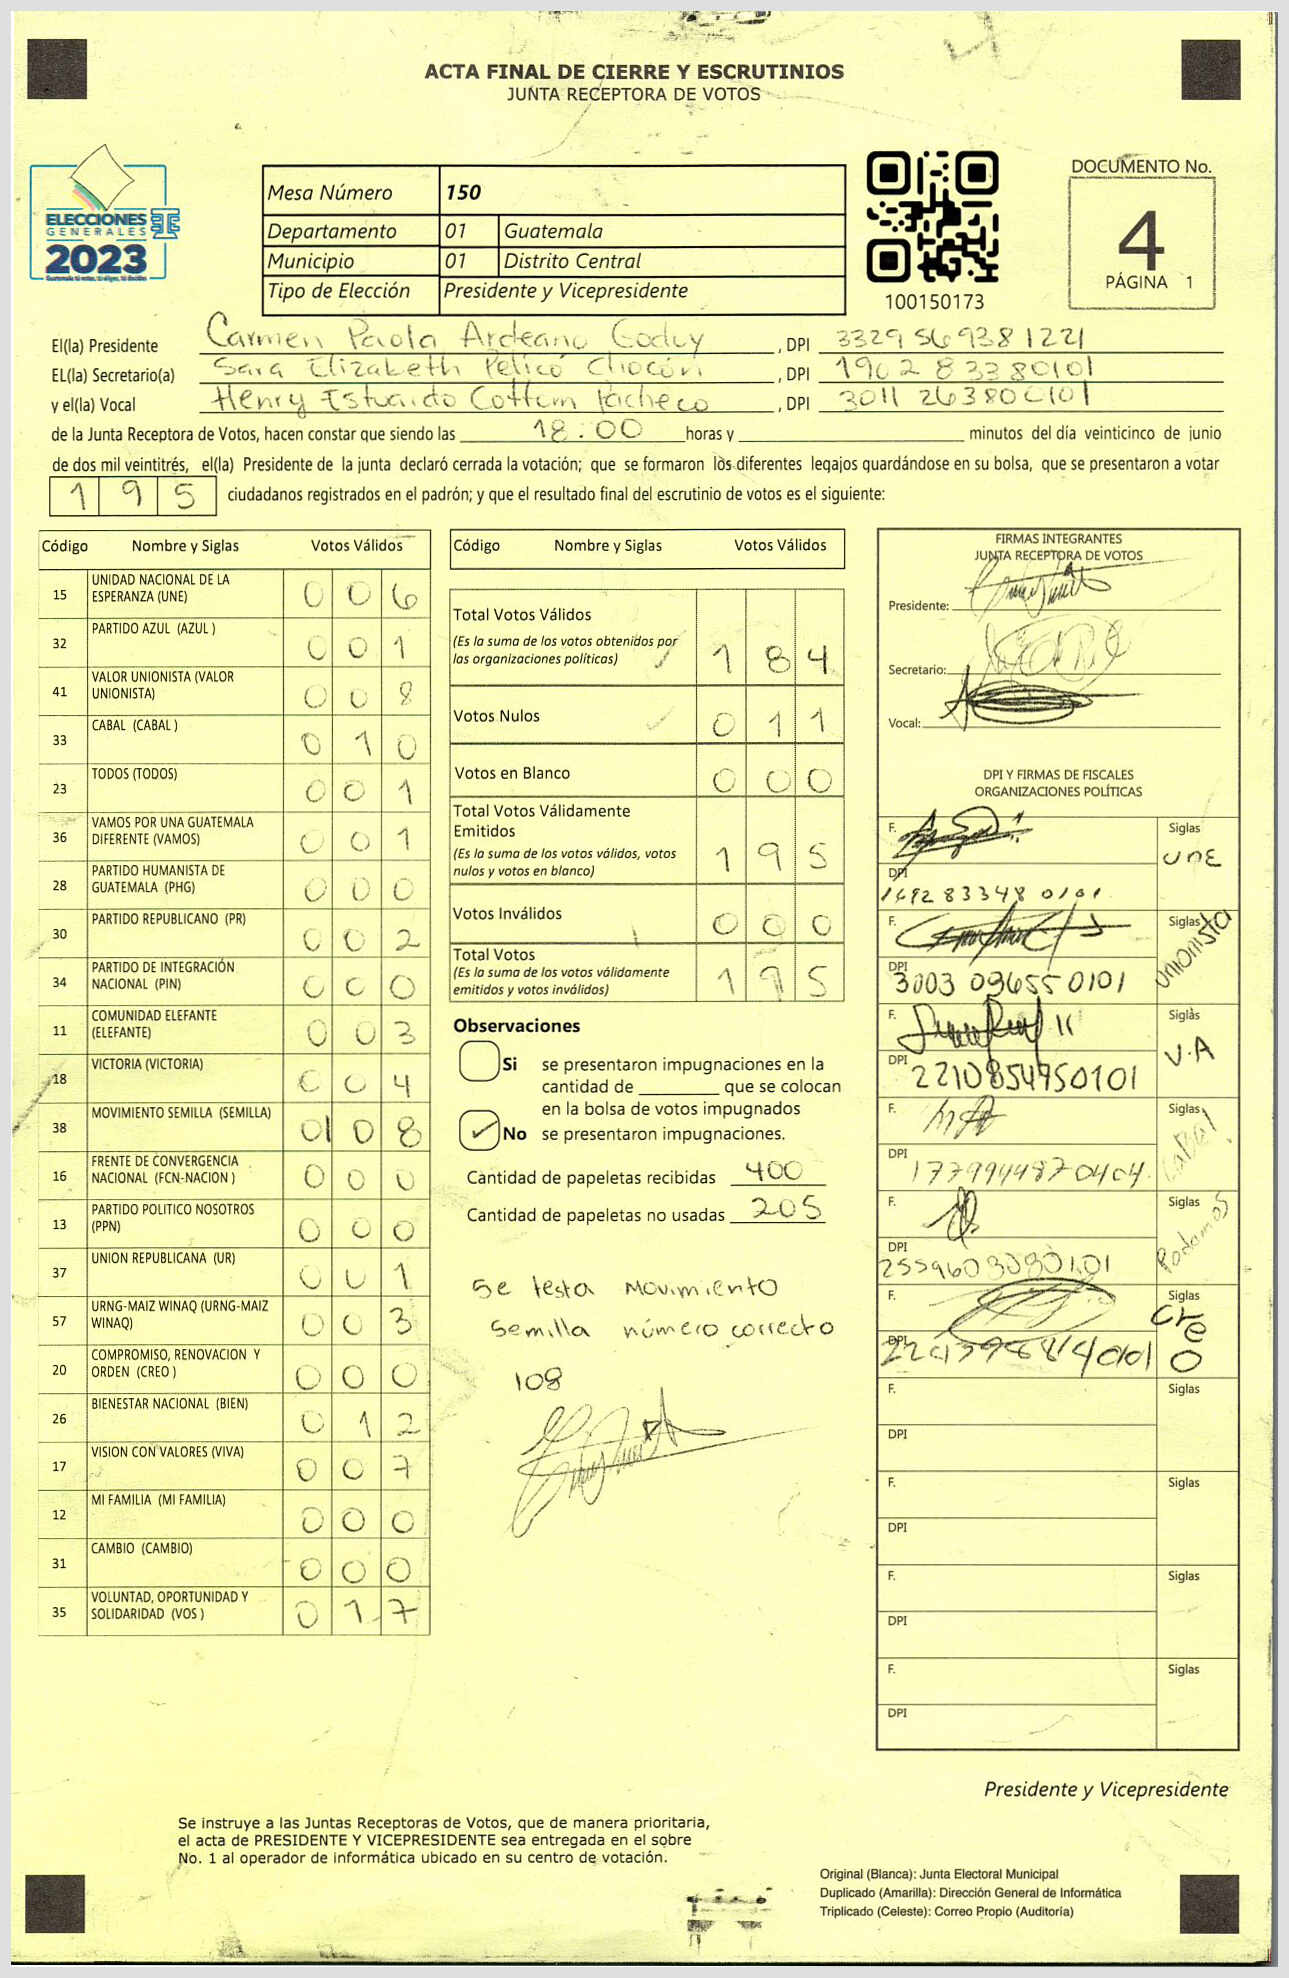 ACTA FINAL DE CIERRE Y ESCRUTINIOS
JUNTA RECEPTORA DE VOTOS
ELECCIONES
GENERALES
2023
Mesa Número 150
Departamento 01 Guatemala
Municipio 01 Distrito Central
Tipo de Elección Presidente y Vicepresidente
100150173
DOCUMENTO No.
4
PÁGINA 1
El(la) Presidente Carmen Paola Ardeano Godoy , DPI 3329 56938 1221
EL(la) Secretario(a) Sara Elizabeth Pelicó Chocón , DPI 1902 83380101
y el(la) Vocal Henry Estuardo Cottum Pacheco , DPI 3011 263800101
de la Junta Receptora de Votos, hacen constar que siendo las 18:00 horas y minutos del día veinticinco de junio
de dos mil veintitrés, el(la) Presidente de la junta declaró cerrada la votación; que se formaron los diferentes legajos guardándose en su bolsa, que se presentaron a votar
1 9 5 ciudadanos registrados en el padrón; y que el resultado final del escrutinio de votos es el siguiente:
Código Nombre y Siglas Votos Válidos
15 UNIDAD NACIONAL DE LA ESPERANZA (UNE) 0 0 6
32 PARTIDO AZUL (AZUL ) 0 0 1
41 VALOR UNIONISTA (VALOR UNIONISTA) 0 0 8
33 CABAL (CABAL ) 0 1 0
23 TODOS (TODOS) 0 0 1
36 VAMOS POR UNA GUATEMALA DIFERENTE (VAMOS) 0 0 1
28 PARTIDO HUMANISTA DE GUATEMALA (PHG) 0 0 0
30 PARTIDO REPUBLICANO (PR) 0 0 2
34 PARTIDO DE INTEGRACIÓN NACIONAL (PIN) 0 0 0
11 COMUNIDAD ELEFANTE (ELEFANTE) 0 0 3
18 VICTORIA (VICTORIA) 0 0 4
38 MOVIMIENTO SEMILLA (SEMILLA) 01 0 8
16 FRENTE DE CONVERGENCIA NACIONAL (FCN-NACION ) 0 0 0
13 PARTIDO POLITICO NOSOTROS (PPN) 0 0 0
37 UNION REPUBLICANA (UR) 0 0 1
57 URNG-MAIZ WINAQ (URNG-MAIZ WINAQ) 0 0 3
20 COMPROMISO, RENOVACION Y ORDEN (CREO ) 0 0 0
26 BIENESTAR NACIONAL (BIEN) 0 1 2
17 VISION CON VALORES (VIVA) 0 0 7
12 MI FAMILIA (MI FAMILIA) 0 0 0
31 CAMBIO (CAMBIO) 0 0 0
35 VOLUNTAD, OPORTUNIDAD Y SOLIDARIDAD (VOS ) 0 1 7
Código Nombre y Siglas Votos Válidos
Total Votos Válidos
(Es la suma de los votos obtenidos por
las organizaciones políticas) 1 8 4
Votos Nulos 0 1 1
Votos en Blanco 0 0 0
Total Votos Válidamente
Emitidos
(Es la suma de los votos válidos, votos
nulos y votos en blanco) 1 9 5
Votos Inválidos 0 0 0
Total Votos
(Es la suma de los votos válidamente
emitidos y votos inválidos) 1 9 5
Observaciones
Si se presentaron impugnaciones en la
cantidad de que se colocan
en la bolsa de votos impugnados
No se presentaron impugnaciones.
Cantidad de papeletas recibidas 400
Cantidad de papeletas no usadas 205
Se testa Movimiento
Semilla número correcto
108
FIRMAS INTEGRANTES
JUNTA RECEPTORA DE VOTOS
Presidente:
Secretario:
Vocal:
DPI Y FIRMAS DE FISCALES
ORGANIZACIONES POLÍTICAS
F. Siglas
UNE
DPI
1692 83348 0101
F. Siglas
Unionista
DPI
3003 096550101
F. Siglas
V.A
DPI
2210854950101
F. Siglas
Cabal
DPI
1779944870404
F. Siglas
Podemos
DPI
2559603080101
F. Siglas
Creo
DPI
F. Siglas
DPI
F. Siglas
DPI
F. Siglas
DPI
F. Siglas
DPI
Presidente y Vicepresidente
Se instruye a las Juntas Receptoras de Votos, que de manera prioritaria,
el acta de PRESIDENTE Y VICEPRESIDENTE sea entregada en el sobre
No. 1 al operador de informática ubicado en su centro de votación.
Original (Blanca): Junta Electoral Municipal
Duplicado (Amarilla): Dirección General de Informática
Triplicado (Celeste): Correo Propio (Auditoría)